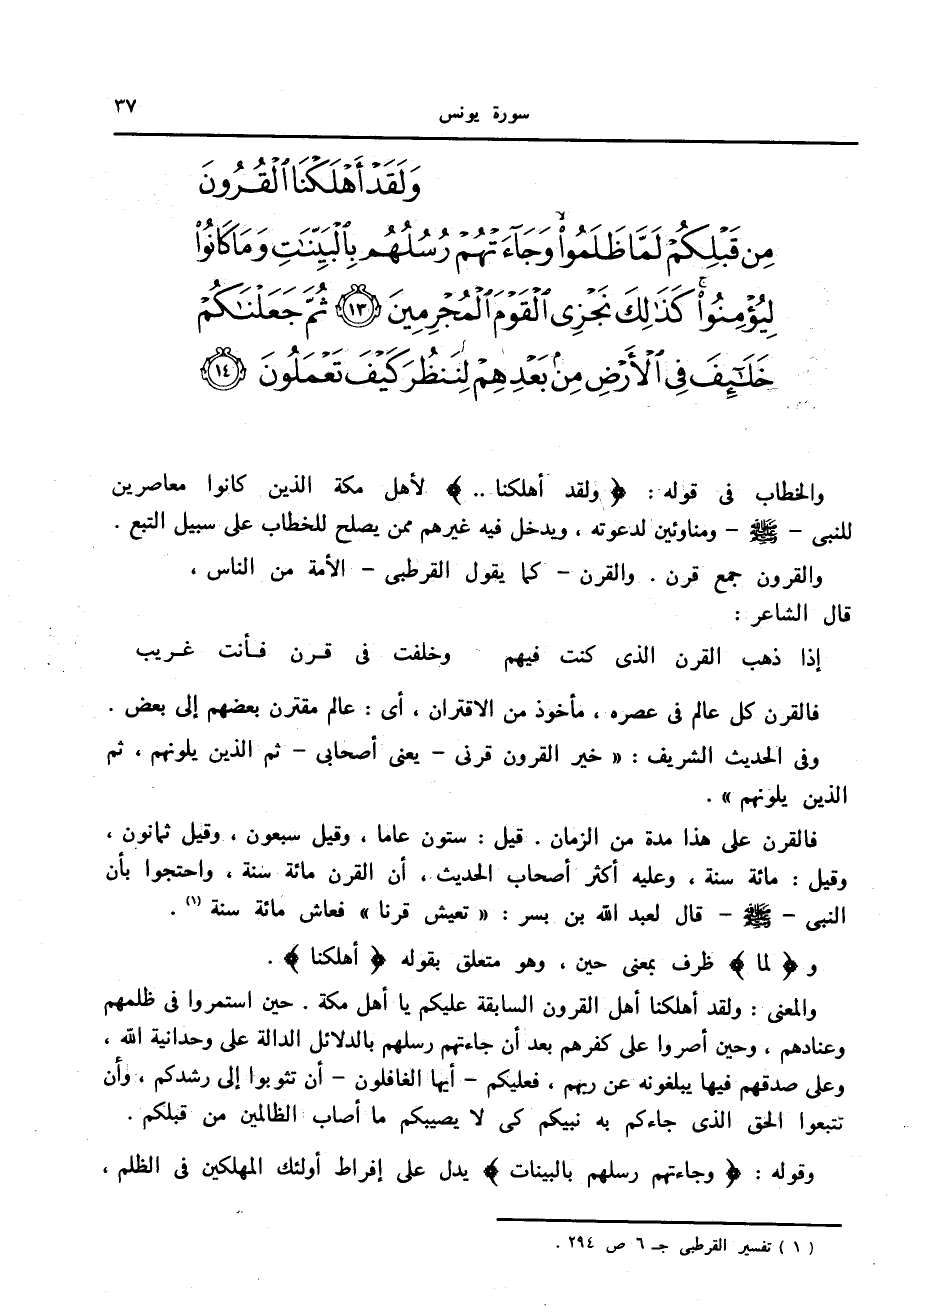 سورة يونس ٣٧
وَلَقَدْ أَهْلَكْنَا ٱلْقُرُونَ
مِن قَبْلِكُمْ لَمَّا ظَلَمُوا۟ ۙ وَجَآءَتْهُمْ رُسُلُهُم بِٱلْبَيِّنَٰتِ وَمَا كَانُوا۟
لِيُؤْمِنُوا۟ ۚ كَذَٰلِكَ نَجْزِى ٱلْقَوْمَ ٱلْمُجْرِمِينَ ١٣ ثُمَّ جَعَلْنَٰكُمْ
خَلَٰٓئِفَ فِى ٱلْأَرْضِ مِنۢ بَعْدِهِمْ لِنَنظُرَ كَيْفَ تَعْمَلُونَ ١٤
والخطاب فى قوله : ﴿ ولقد أهلكنا .. ﴾ لأهل مكة الذين كانوا معاصرين
للنبى – ﷺ – ومناوئين لدعوته ، ويدخل فيه غيرهم ممن يصلح للخطاب على سبيل التبع .
والقرون جمع قرن . والقرن – كما يقول القرطبى – الأمة من الناس ،
قال الشاعر :
إذا ذهب القرن الذى كنت فيهم وخلفت فى قرن فأنت غريب
فالقرن كل عالم فى عصره ، مأخوذ من الاقتران ، أى : عالم مقترن بعضهم إلى بعض .
وفى الحديث الشريف : « خير القرون قرنى – يعنى أصحابى – ثم الذين يلونهم ، ثم
الذين يلونهم » .
فالقرن على هذا مدة من الزمان . قيل : ستون عاما ، وقيل سبعون ، وقيل ثمانون ،
وقيل : مائة سنة ، وعليه أكثر أصحاب الحديث ، أن القرن مائة سنة ، واحتجوا بأن
النبى – ﷺ – قال لعبد الله بن بسر : « تعيش قرنا » فعاش مائة سنة (١) .
و ﴿ لما ﴾ ظرف بمعنى حين ، وهو متعلق بقوله ﴿ أهلكنا ﴾ .
والمعنى : ولقد أهلكنا أهل القرون السابقة عليكم يا أهل مكة . حين استمروا فى ظلمهم
وعنادهم ، وحين أصروا على كفرهم بعد أن جاءتهم رسلهم بالدلائل الدالة على وحدانية الله ،
وعلى صدقهم فيها يبلغونه عن ربهم ، فعليكم – أيها الغافلون – أن تثوبوا إلى رشدكم ، وأن
تتبعوا الحق الذى جاءكم به نبيكم كى لا يصيبكم ما أصاب الظالمين من قبلكم .
وقوله : ﴿ وجاءتهم رسلهم بالبينات ﴾ يدل على إفراط أولئك المهلكين فى الظلم ،
( ١ ) تفسير القرطبى جـ ٦ ص ٢٩٤ .